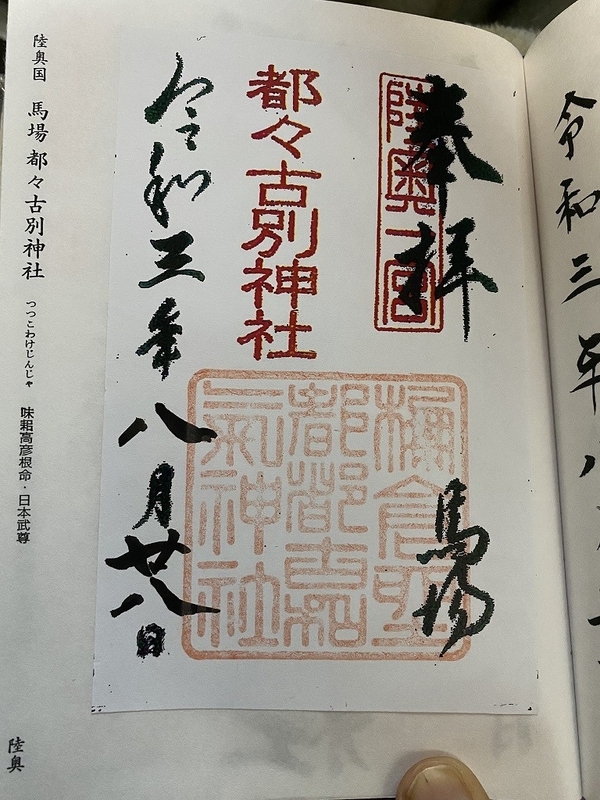 令和三年八
奉拝
陸奥一宮
馬場
都々古別神社
都都古和
氣神社
令和三年八月廿八日
陸奥国 馬場都々古別神社 つつこわけじんじゃ 味耜高彦根命・日本武尊
陸奥